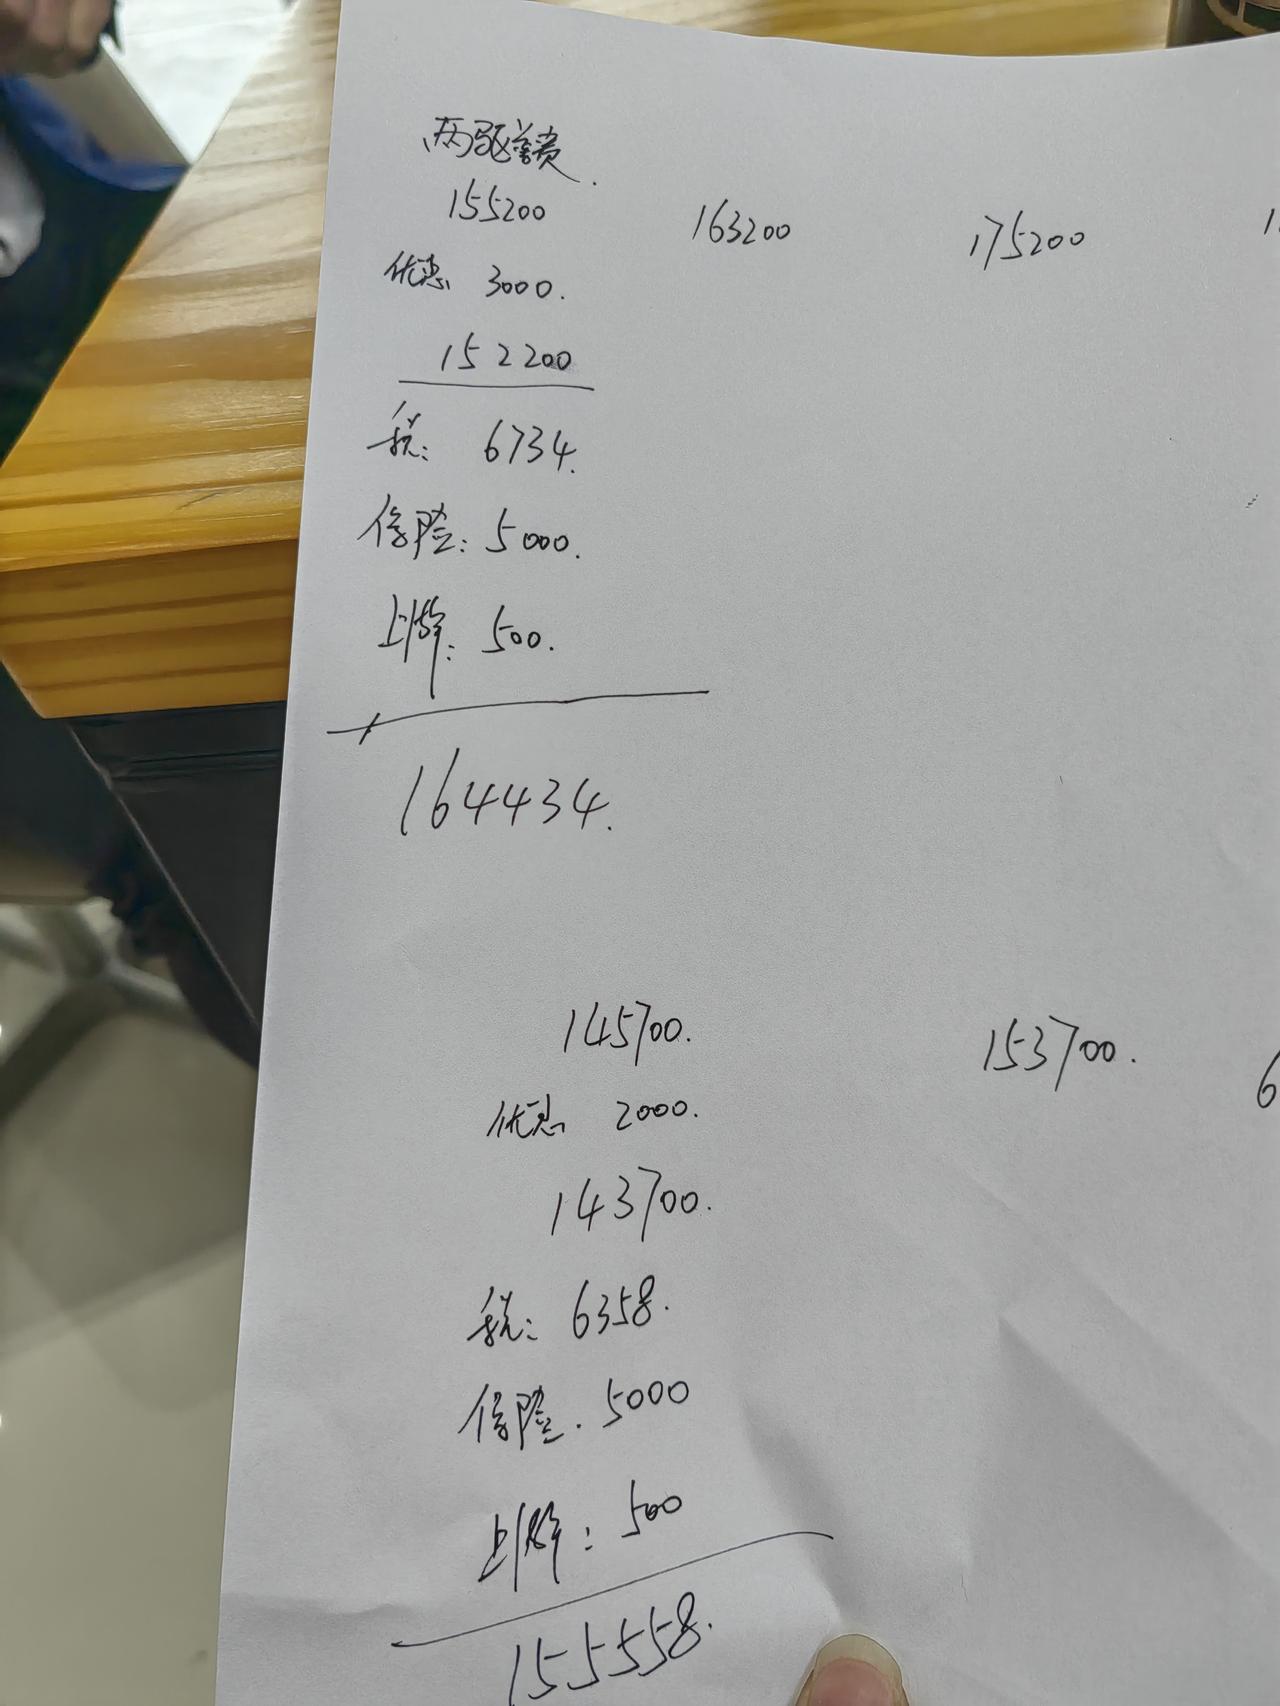 两驱
155200 163200 175200
优惠 3000.
152200
税: 6734.
保险: 5000.
上牌: 500.
164434.
145700. 153700. 6
优惠 2000.
143700.
税: 6358.
保险. 5000
上牌: 500
155558.